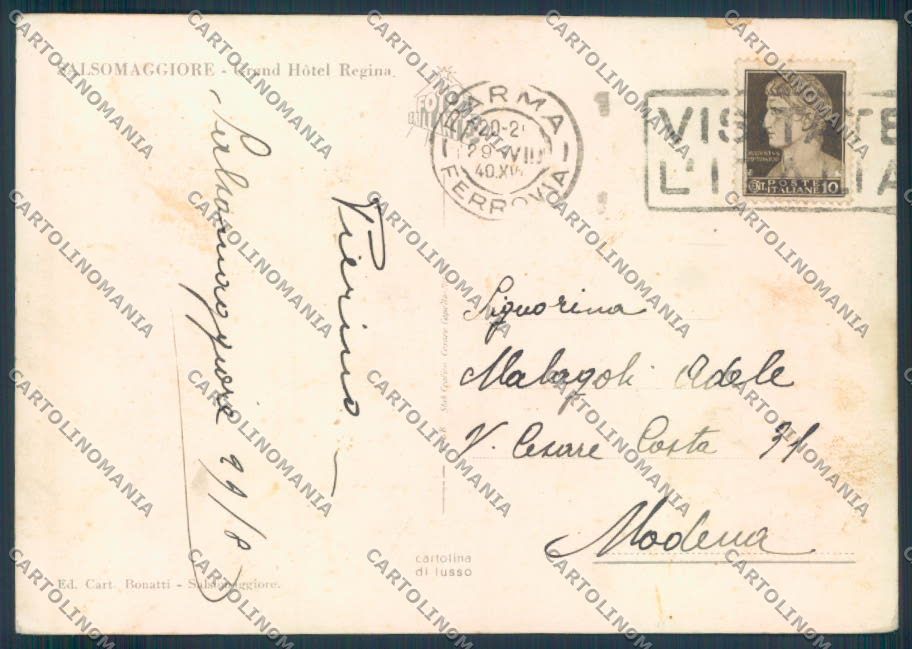 SALSOMAGGIORE - Grand Hôtel Regina.
PARMA
FERROVIA
40.XVI
VISITATE
L'ITALIA
POSTE
ITALIANE 10
Salsomaggiore 29/8
Pierino
Signorina
Malagoli Adele
V. Cesare Costa
Modena
cartolina
di lusso
Ed. Cart. Bonatti - Salsomaggiore.
CARTOLINOMANIA